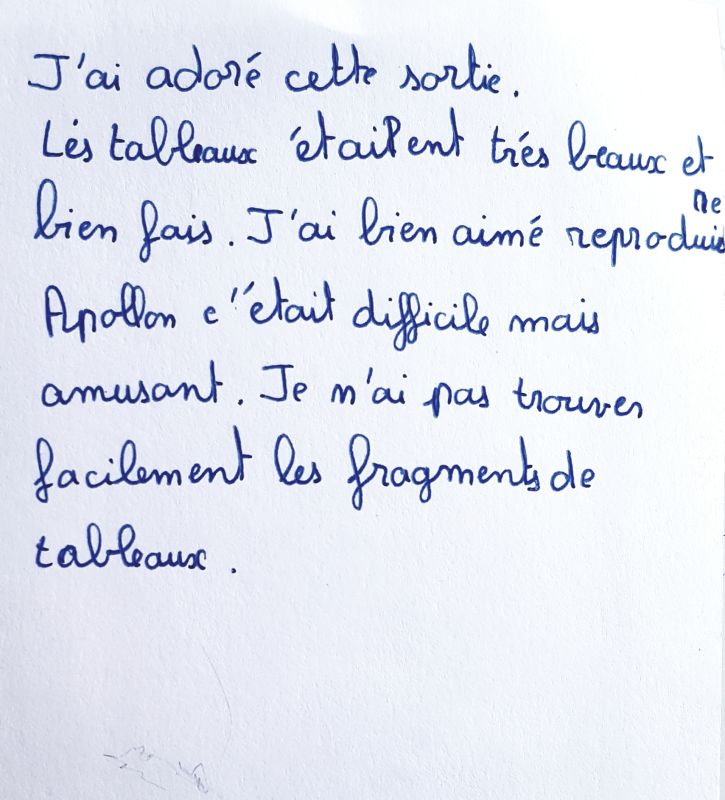 J'ai adoré cette sortie.
Lés tableaux étaient trés beaux et
bien fais. J'ai bien aimé reproduire
Apollon c'était difficile mais
amusant. Je n'ai pas trouver
facilement les fragments de
tableaux.